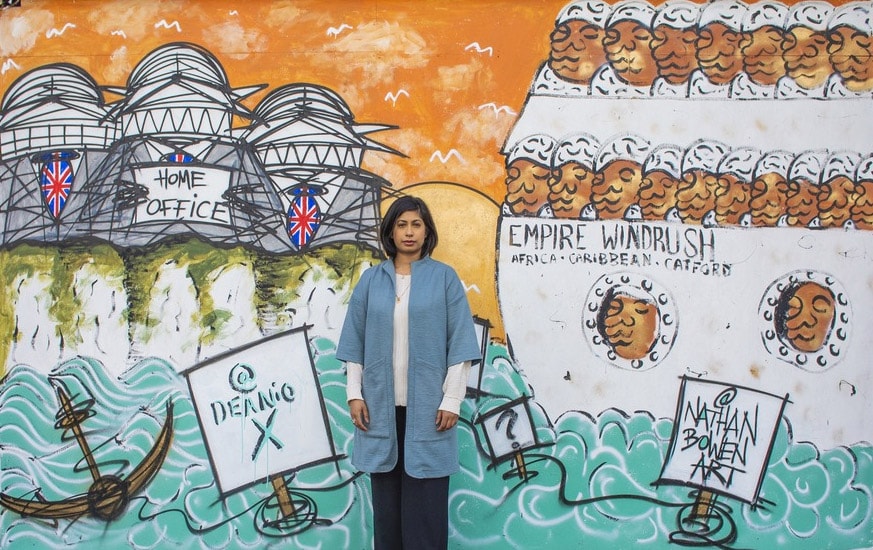 HOME
OFFICE
EMPIRE WINDRUSH
AFRICA · CARIBBEAN · CATFORD
@
DEANIO
X
?
@
NATHAN
BOWEN
ART